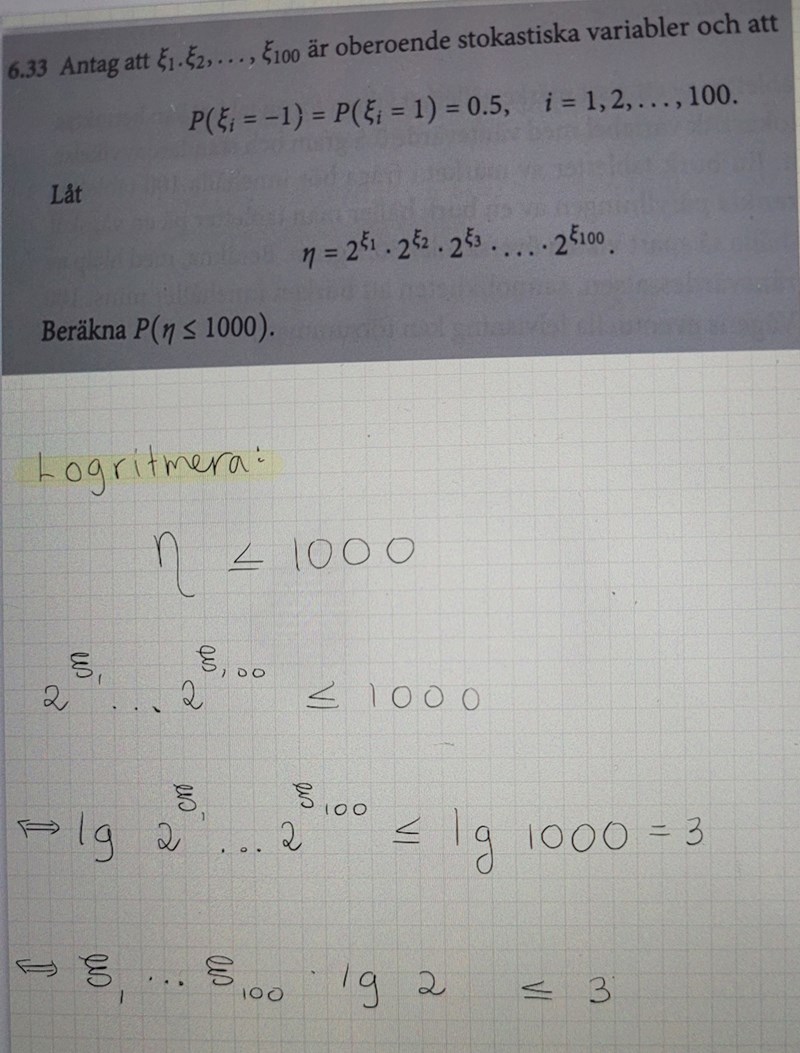 6.33 Antag att ξ₁.ξ₂, . . . , ξ₁₀₀ är oberoende stokastiska variabler och att
P(ξᵢ = −1) = P(ξᵢ = 1) = 0.5, i = 1, 2, . . . , 100.
Låt
η = 2^ξ₁ · 2^ξ₂ · 2^ξ₃ · . . . . · 2^ξ₁₀₀.
Beräkna P(η ≤ 1000).
Logritmera:
η ≤ 1000
2^ξ₁ . . . 2^ξ₁₀₀ ≤ 1000
⇔ lg 2^ξ₁ . . . 2^ξ₁₀₀ ≤ lg 1000 = 3
⇔ ξ₁ . . . ξ₁₀₀ · lg 2 ≤ 3